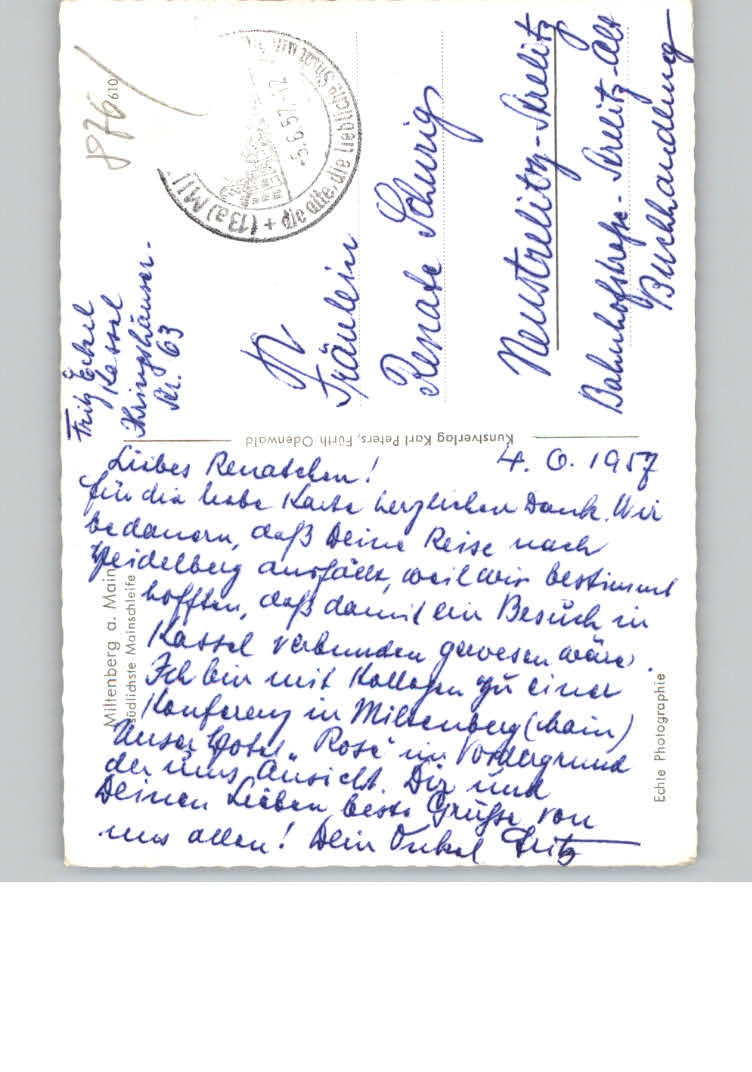 876
610
(13a) MIL
5.6.57.-12
die alte, die liebliche Stadt am
Fritz Eckel
Kassel
Nr. 63
Fräulein
Renate Schurig
Neustrelitz-Strelitz
Bahnhofstraße-Strelitz-Alt
Buchhandlung
Kunstverlag Karl Peters, Fürth Odenwald
Miltenberg a. Main
südlichste Mainschleife
Echte Photographie
4. 6. 1957
Liebes Renatchen!
für die liebe Karte herzlichen Dank. Wir
bedauern, daß Deine Reise nach
Heidelberg ausfällt, weil wir bestimmt
hofften, daß damit ein Besuch in
Kassel verbunden gewesen wäre.
Ich bin mit Kollegen zu einer
Konferenz in Miltenberg (Main)
Unser Hotel „Rose“ im Vordergrund
der Ansicht. Dir und
Deinen Lieben beste Grüße von
uns allen! Dein Onkel Fritz